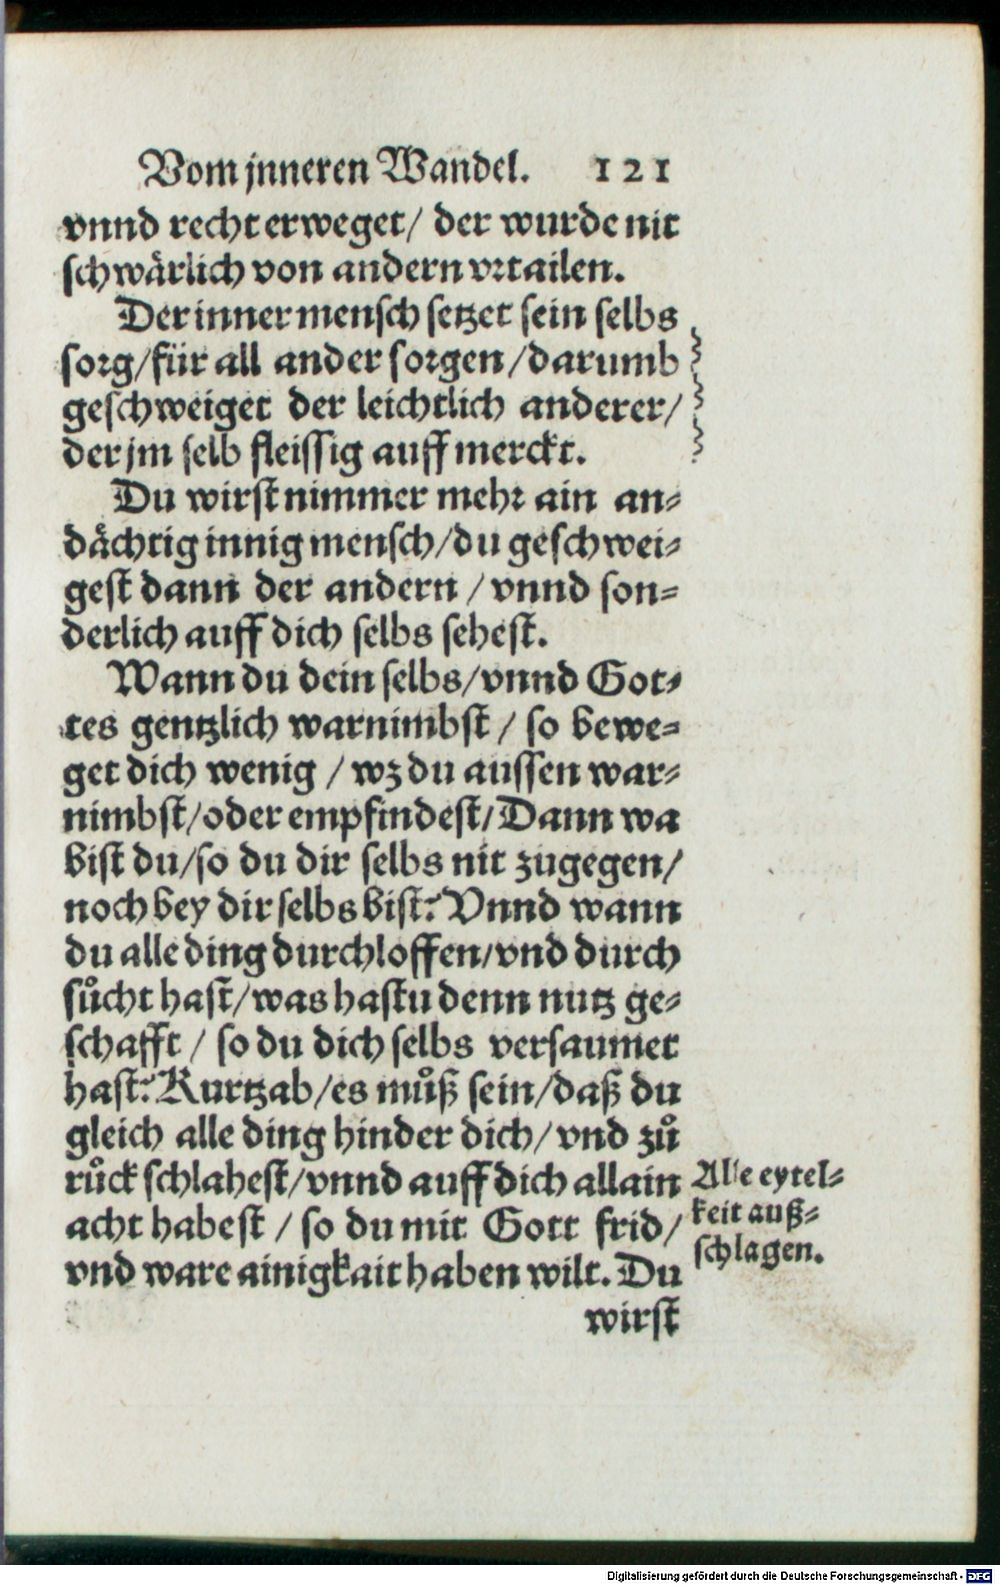 Vom jnneren Wandel. 121
vnnd recht erweget/ der wurde nit
schwärlich von andern vrtailen.
Der inner mensch setzet sein selbs
sorg/für all ander sorgen/darumb
geschweiget der leichtlich anderer/
der jm selb fleissig auff merckt.
Du wirst nimmer mehr ain an⸗
dächtig innig mensch/du geschwei⸗
gest dann der andern / vnnd son⸗
derlich auff dich selbs sehest.
Wann du dein selbs/vnnd Got⸗
tes gentzlich warnimbst / so bewe⸗
get dich wenig / wz du aussen war⸗
nimbst/oder empfindest/Dann wa
bist du/so du dir selbs nit zugegen/
noch bey dir selbs bist? Vnnd wann
du alle ding durchloffen/vnd durch
sůcht hast/was hastu denn nutz ge⸗
schafft / so du dich selbs versaumet
hast? Kurtzab/es můß sein/daß du
gleich alle ding hinder dich/vnd zů
růck schlahest/vnnd auff dich allain
acht habest / so du mit Gott frid/
vnd ware ainigkait haben wilt. Du
wirst
Alle eytel⸗
keit auß⸗
schlagen.
Digitalisierung gefördert durch die Deutsche Forschungsgemeinschaft - DFG